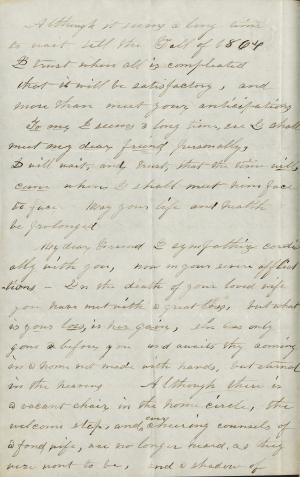 Although it seems a long time
to wait till the Fall of 1864
I trust when all is completed
that it will be satisfactory, and
more than meet your anticipations
To me, it seems a long time, ere I shall
meet my dear friend personally,
I will wait, and trust, that the time will
come when I shall meet him face
to face May your life and health
be prolonged
My dear Friend I sympathize cordi
ally with you, now in your severe afflict
tions - In the death of your loved wife
you have met with a great loss, but what
is your loss, is her gain, she has only
gone before you and awaits thy coming
in a home not made with hands, but eternal
in the heavens Although there is
a vacant chair in the home circle, the
welcome step, and cheering counsels of
a fond wife, are no longer heard, as they
were wont to be, and a shadow of